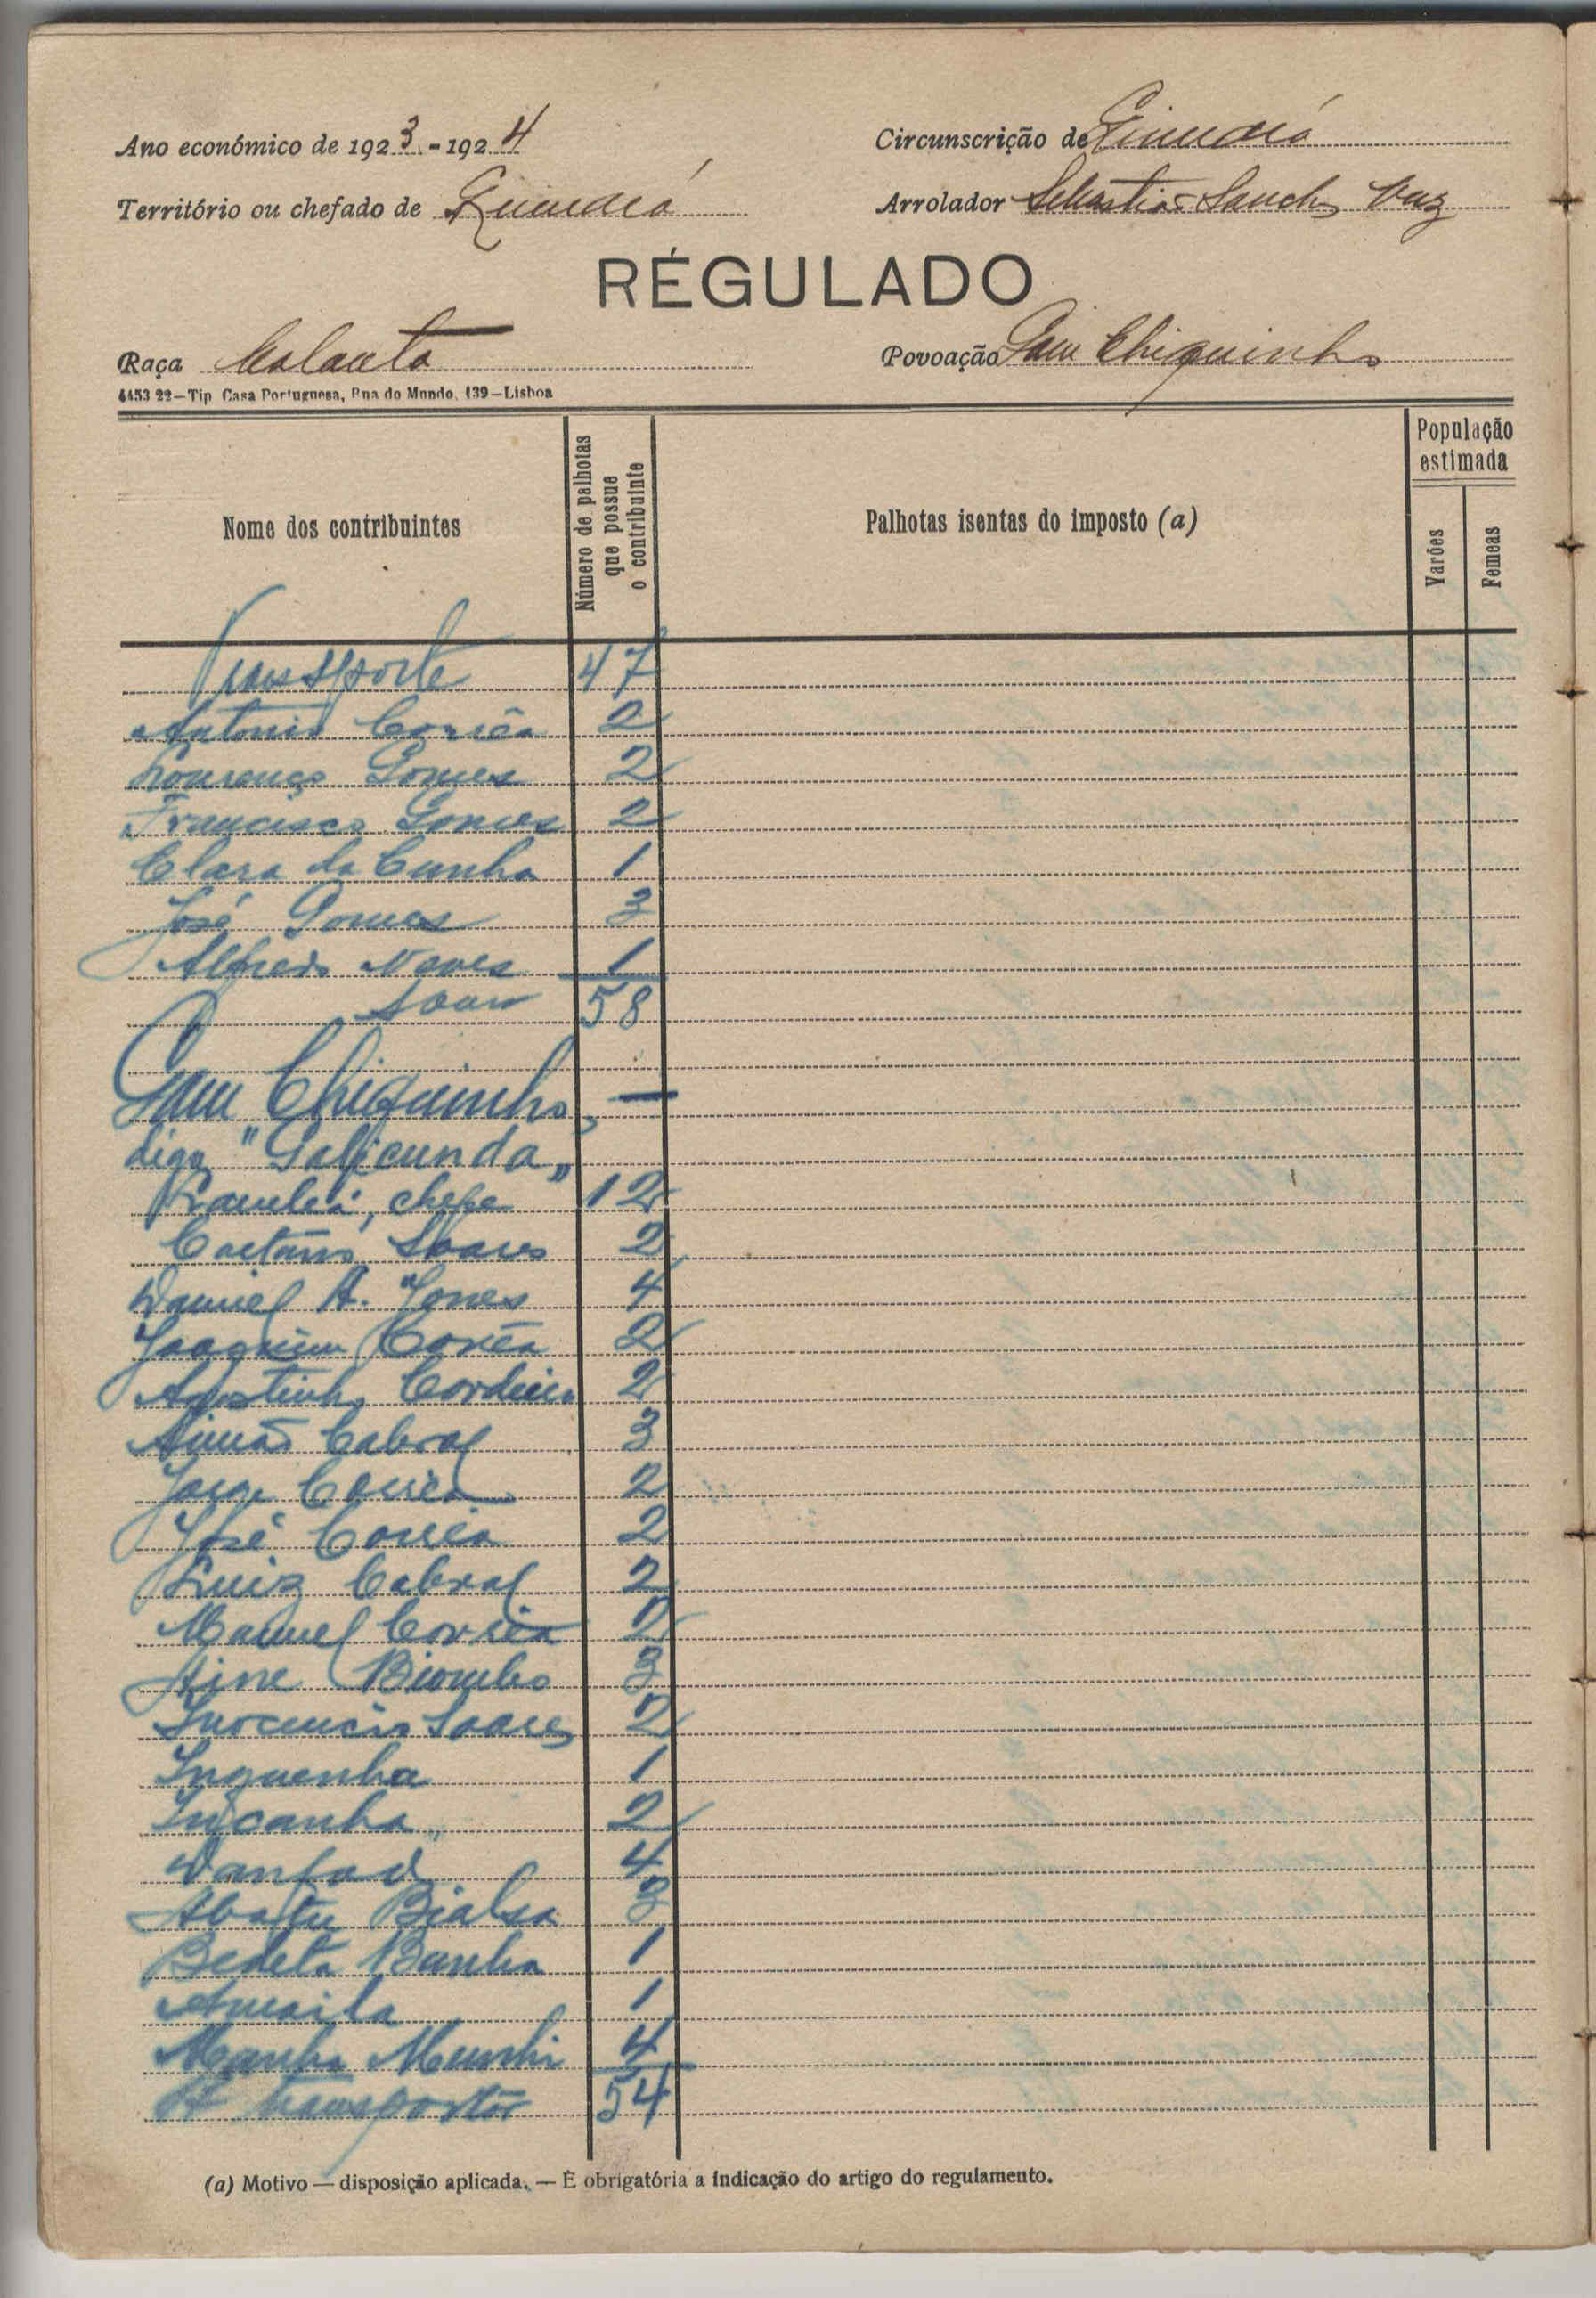 Ano económico de 1923-1924
Circunscrição de
Território ou chefado de
Arrolador Sebastião Sanches Vaz
RÉGULADO
Raça
Povoação Sam Chiquinho
4453 22—Tip. Casa Portuguesa, Rua do Mundo, 139—Lisboa
Nome dos contribuintes
Número de palhotas que possue o contribuinte
Palhotas isentas do imposto (a)
População estimada
Varões
Femeas
Transporte 47
Antonio Corrêa 2
Lourenço Gomes 2
Francisco Gomes 2
Clara da Cunha 1
José Gomes 3
Alfredo Naves 1
Soma 58
Sam Chiquinho, —
digo "Galicunda"
chefe 12
Caetano Soares 2
Daniel A. Jones 4
Joaquim Corrêa 2
Agostinho Cordeiro 2
Simão Cabral 3
Jorge Corrêa 2
José Correia 2
Luiz Cabral 2
Manuel Corrêa 2
Biombo 3
Inocencio Soares 2
Inquenha 1
Incanha 2
4
Bialsa 3
Bedeta Banha 1
1
4
A transportar 54
(a) Motivo — disposição aplicada. — É obrigatória a indicação do artigo do regulamento.